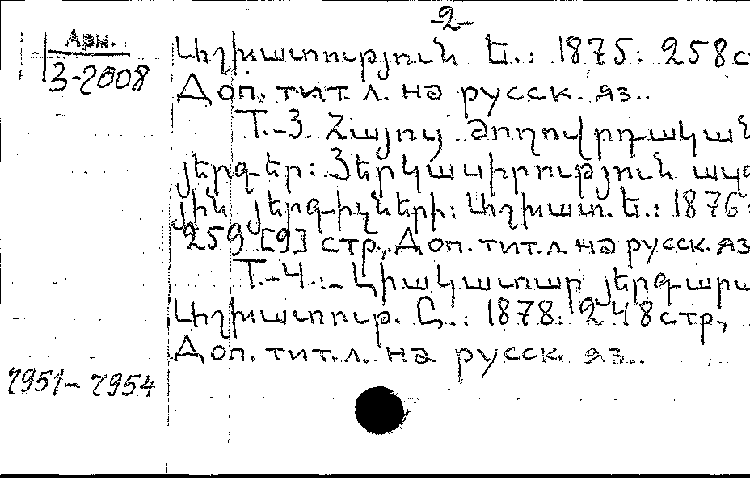 -2-
Арм.
3-2008
Աշխատություն Ե.: 1875. 258с
Доп. тит. л. на русск. яз..
Т.-3. Հայոց ժողովրդական
յերգեր: Յերկասիրություն ազգ
յին յերգիչների: Աշխատ. Ե.: 1876.
259 [9] стр, Доп. тит. л на русск. яз
Т.-4.:- Լիակատար յերգարա
Աշխատութ. Ը.: 1878. 248 стр,
Доп. тит. л. на русск яз..
7951-7954